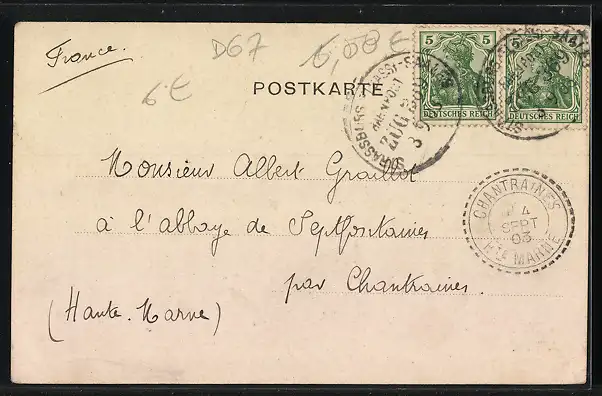 France.
D67
6,00 €
6 €
POSTKARTE
5
DEUTSCHES REICH
DEUTSCHES REICH
STRASSBURG
BAHNPOST
ZUG
Monsieur Albert Graillot
à l'abbaye de Septfontaines
par Chantraines.
(Haute-Marne)
CHANTRAINES
4
SEPT
03
HTE MARNE